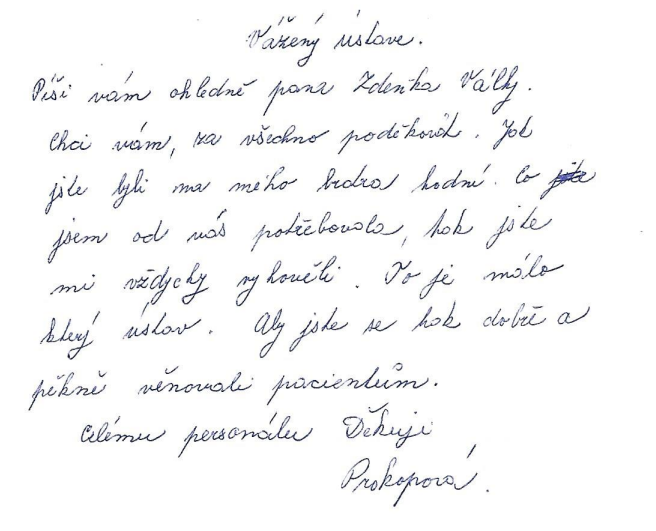 Vážený ústave.
Píši vám ohledně pana Zdeňka Války.
Chci vám, za všechno poděkovat. Jak
jste byli na mého bratra hodní. Co
jsem od vás potřebovala, tak jste
mi vždycky vyhověli. To je málo
který ústav. Aby jste se tak dobře a
pěkně věnovali pacientům.
Celému personálu Děkuji
Prokopová.